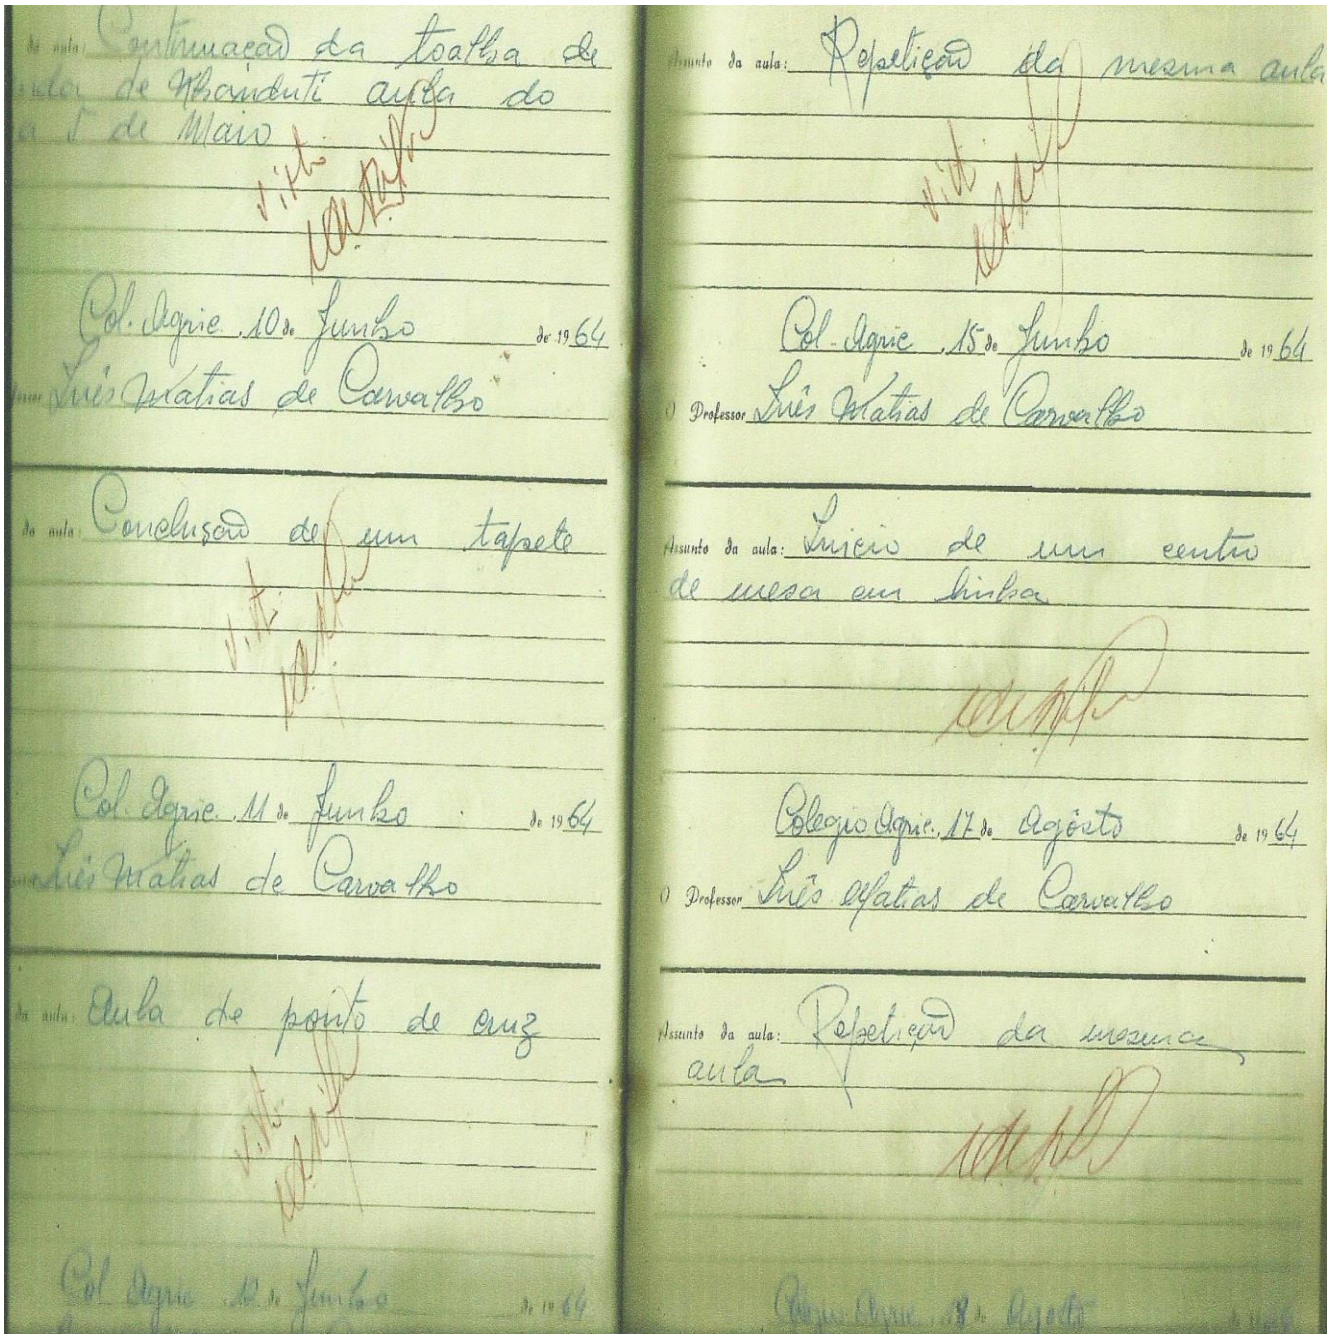 da aula: Continuação da toalha de
renda de Nhanduti aula do
dia 5 de Maio
visto
Col. Agric. 10 de Junho de 1964
Inês Matias de Carvalho
da aula: Conclusão de um tapete
visto
Col. Agric. 11 de Junho de 1964
Inês Matias de Carvalho
da aula: Aula de ponto de cruz
visto
Col. Agric. 12 de Junho de 1964
Assunto da aula: Repetição da mesma aula
visto
Col. Agric. 15 de Junho de 1964
O Professor Inês Matias de Carvalho
Assunto da aula: Inicio de um centro
de mesa em linha
Colegio Agric. 17 de Agôsto de 1964
O Professor Inês Matias de Carvalho
Assunto da aula: Repetição da mesma
aula
Colegio Agric. 18 de Agosto